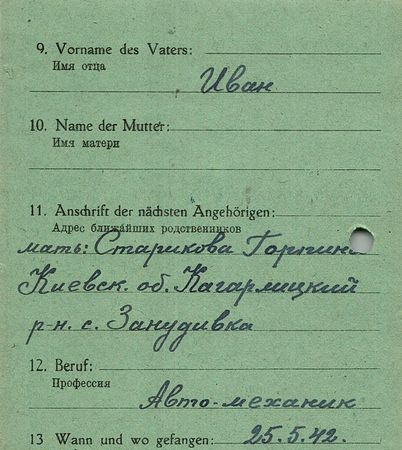 9. Vorname des Vaters:
Имя отца
Иван
10. Name der Mutter:
Имя матери
11. Anschrift der nächsten Angehörigen:
Адрес ближайших родственников
мать: Старикова Горпина
Киевск. об. Кагарлицкий
р-н. с. Занудивка
12. Beruf:
Профессия
Авто-механик
13 Wann und wo gefangen: 25.5.42.